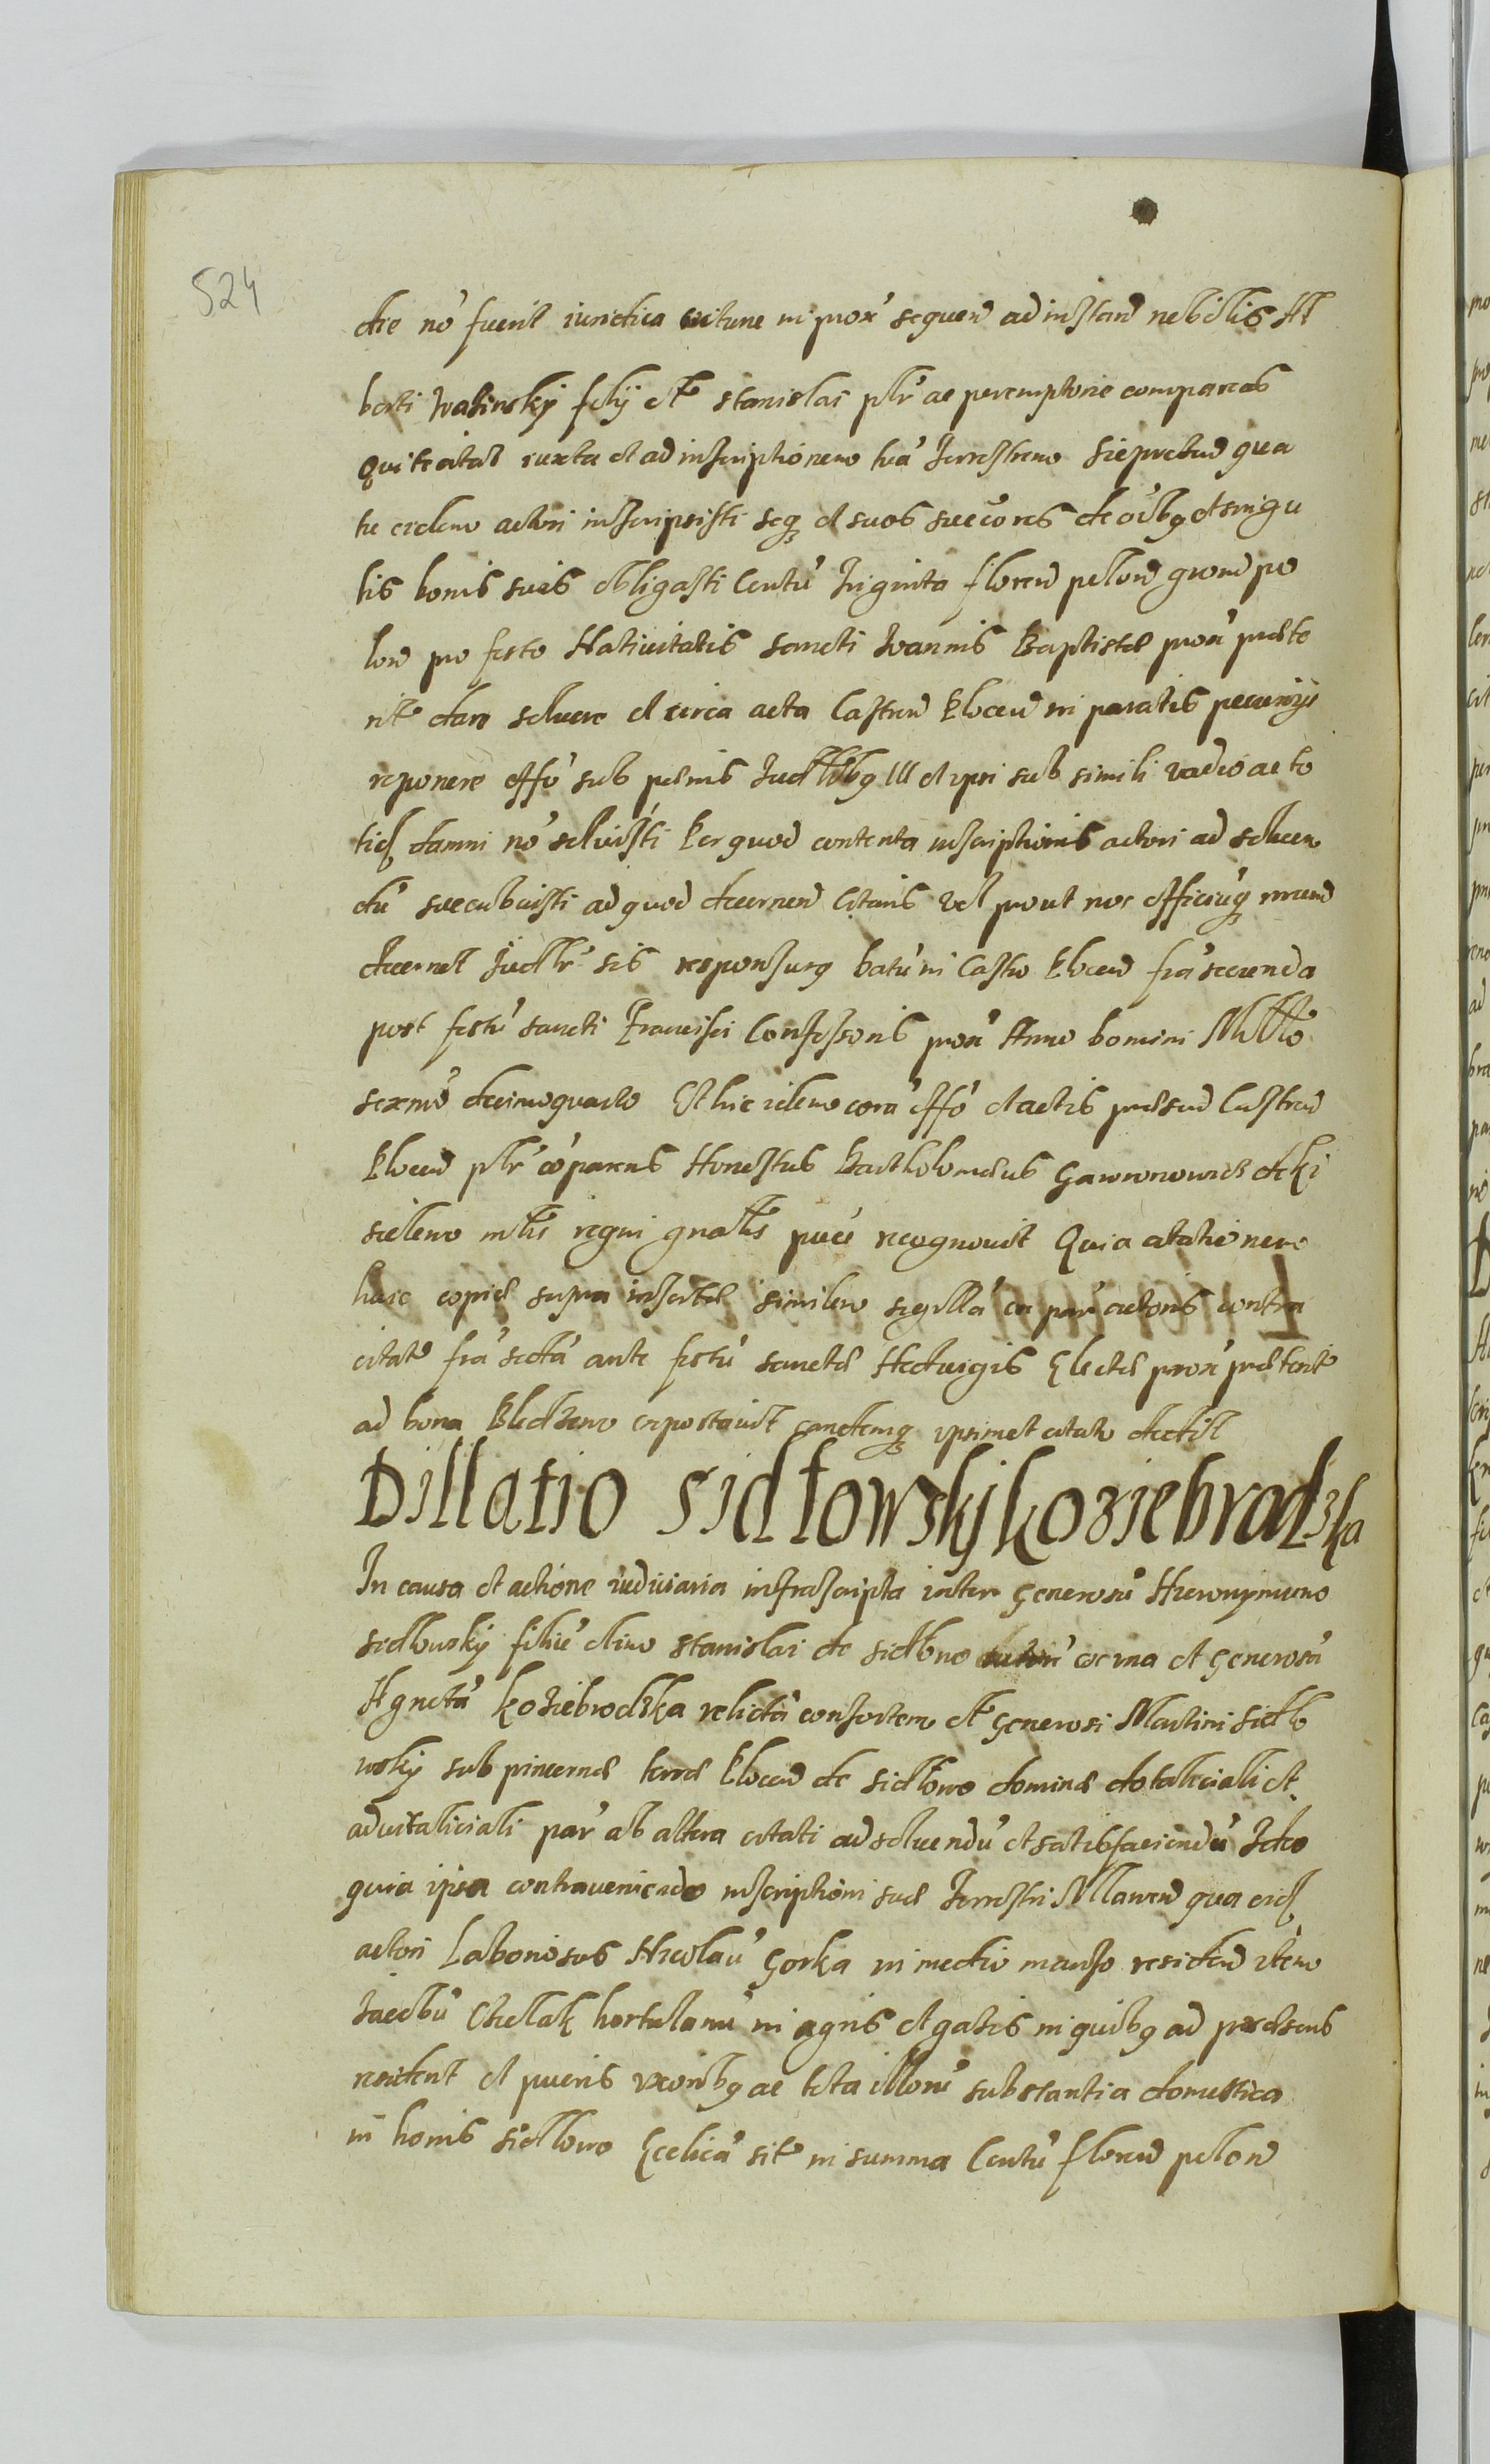 524
die nō fuerit iuridica extunc in prox̄ sequen̄ ad instan̄ nobilis Al
berti filij olī Stanislai pltr̄ ac peremptorie compareas
Qui te citat iuxta et ad inscriptionem tuā Terrestrem Sieprcen̄ qua
tu eidem actori inscripsisti seq3 et suos succ̄ores de oībg et singu
lis bonis suis obligasti Centū Triginta floren̄ polon̄ gron̄ po
lon̄ pro festo Natiuitatis Sancti Joannis Baptistæ prox̄ præte
rito dare soluere et circa acta Castren̄ Plocen̄ in paratis pecunijs
reponere offō sub pænis Iudlibg III et ipsi sub simili vadio ac to
tid damni nō soluisti Per quod contenta inscriptionis actori ad soluen
dū succubuisti ad quod decernen̄ Citaris vel prout nos officiūq3 nrum
decernet Iudlr̄ sis responsurg Datū in Castro Plocen̄ frā secunda
post festū Sancti Francisci Confessoris prox̄ Anno Domini Mlltō
sexmō decimoquarto Et hic idem corā offō et actis præsen̄ Castren̄
Plocen̄ pltr̄ cōparens Honestus Bartholomæus Gawronowicz de Ki
sielewo mltis regni gnalis puū recognouit Quia citationem
huic copiæ supra insertæ similem sigillā ex par̄ actoris contra
citatū frā sextā ante festū Sanctæ Heduigis Electæ prox̄ præteritū
ad bona exportauit eandemq3 ipsimet citatæ dedit
Dillatio Sidłowskj Koziebradzka
In causa et actione iudiciaria infrascripta inter Generosū Hieronymum
Sidłowsky filiū olim Stanislai de Sidłowo actorē ex vna et Generosā
Agnetā Koziebrodzka relictā consortem olī Generosi Martini Sidło
wsky sub pincernæ terræ Plocen̄ de Sidłowo dominæ dotaliciali et
aduitaliciali par̄ ab altera citati ad soluendū et satisfaciendū Ideo
quia ipsa contraueniendo inscriptioni suæ Terrestri Mlawen̄ qua eid
actori Laboriosos Nicolaū Gorka in medio manso residen̄ item
Jacobū hortulanū in agris et gasis in quibg ad præsens
resident et pueris vxoribg ac tota illorū substantia domestica
in bonis Sidłowo Ecclicā sitō in summa Centū floren̄ polon̄